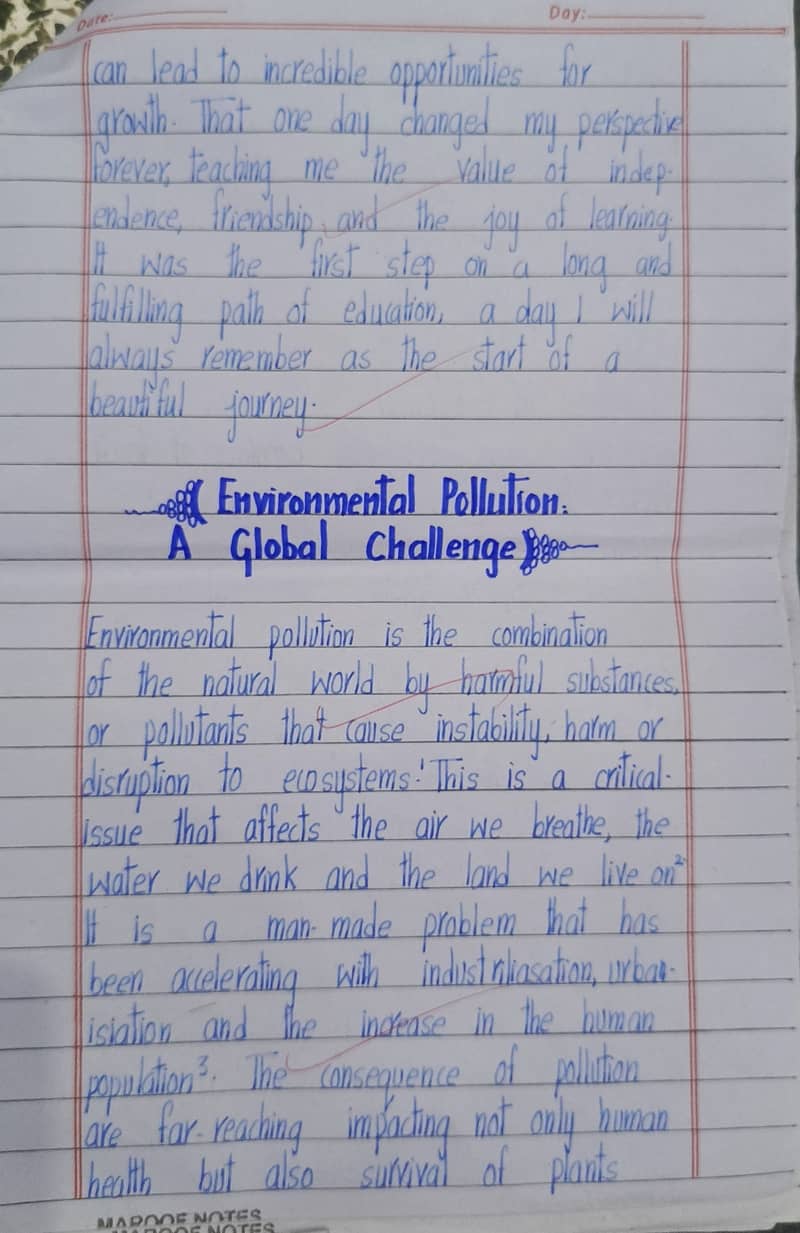 Date:
Day:
can lead to incredible opportunities for
growth. That one day changed my perspective
forever, teaching me the value of indep-
endence, friendship and the joy of learning.
It was the first step on a long and
fulfilling path of education, a day I will
always remember as the start of a
beautiful journey.
Environmental Pollution:
A Global Challenge
Environmental pollution is the combination
of the natural world by harmful substances,
or pollutants that cause instability, harm or
disruption to ecosystems.¹ This is a critical
issue that affects the air we breathe, the
water we drink and the land we live on²
It is a man-made problem that has
been accelerating with industrliasation, urban-
isiation and the increase in the human
population³. The consequence of pollution
are far-reaching impacting not only human
health but also survival of plants
MAROOF NOTES
MAROOF NOTES